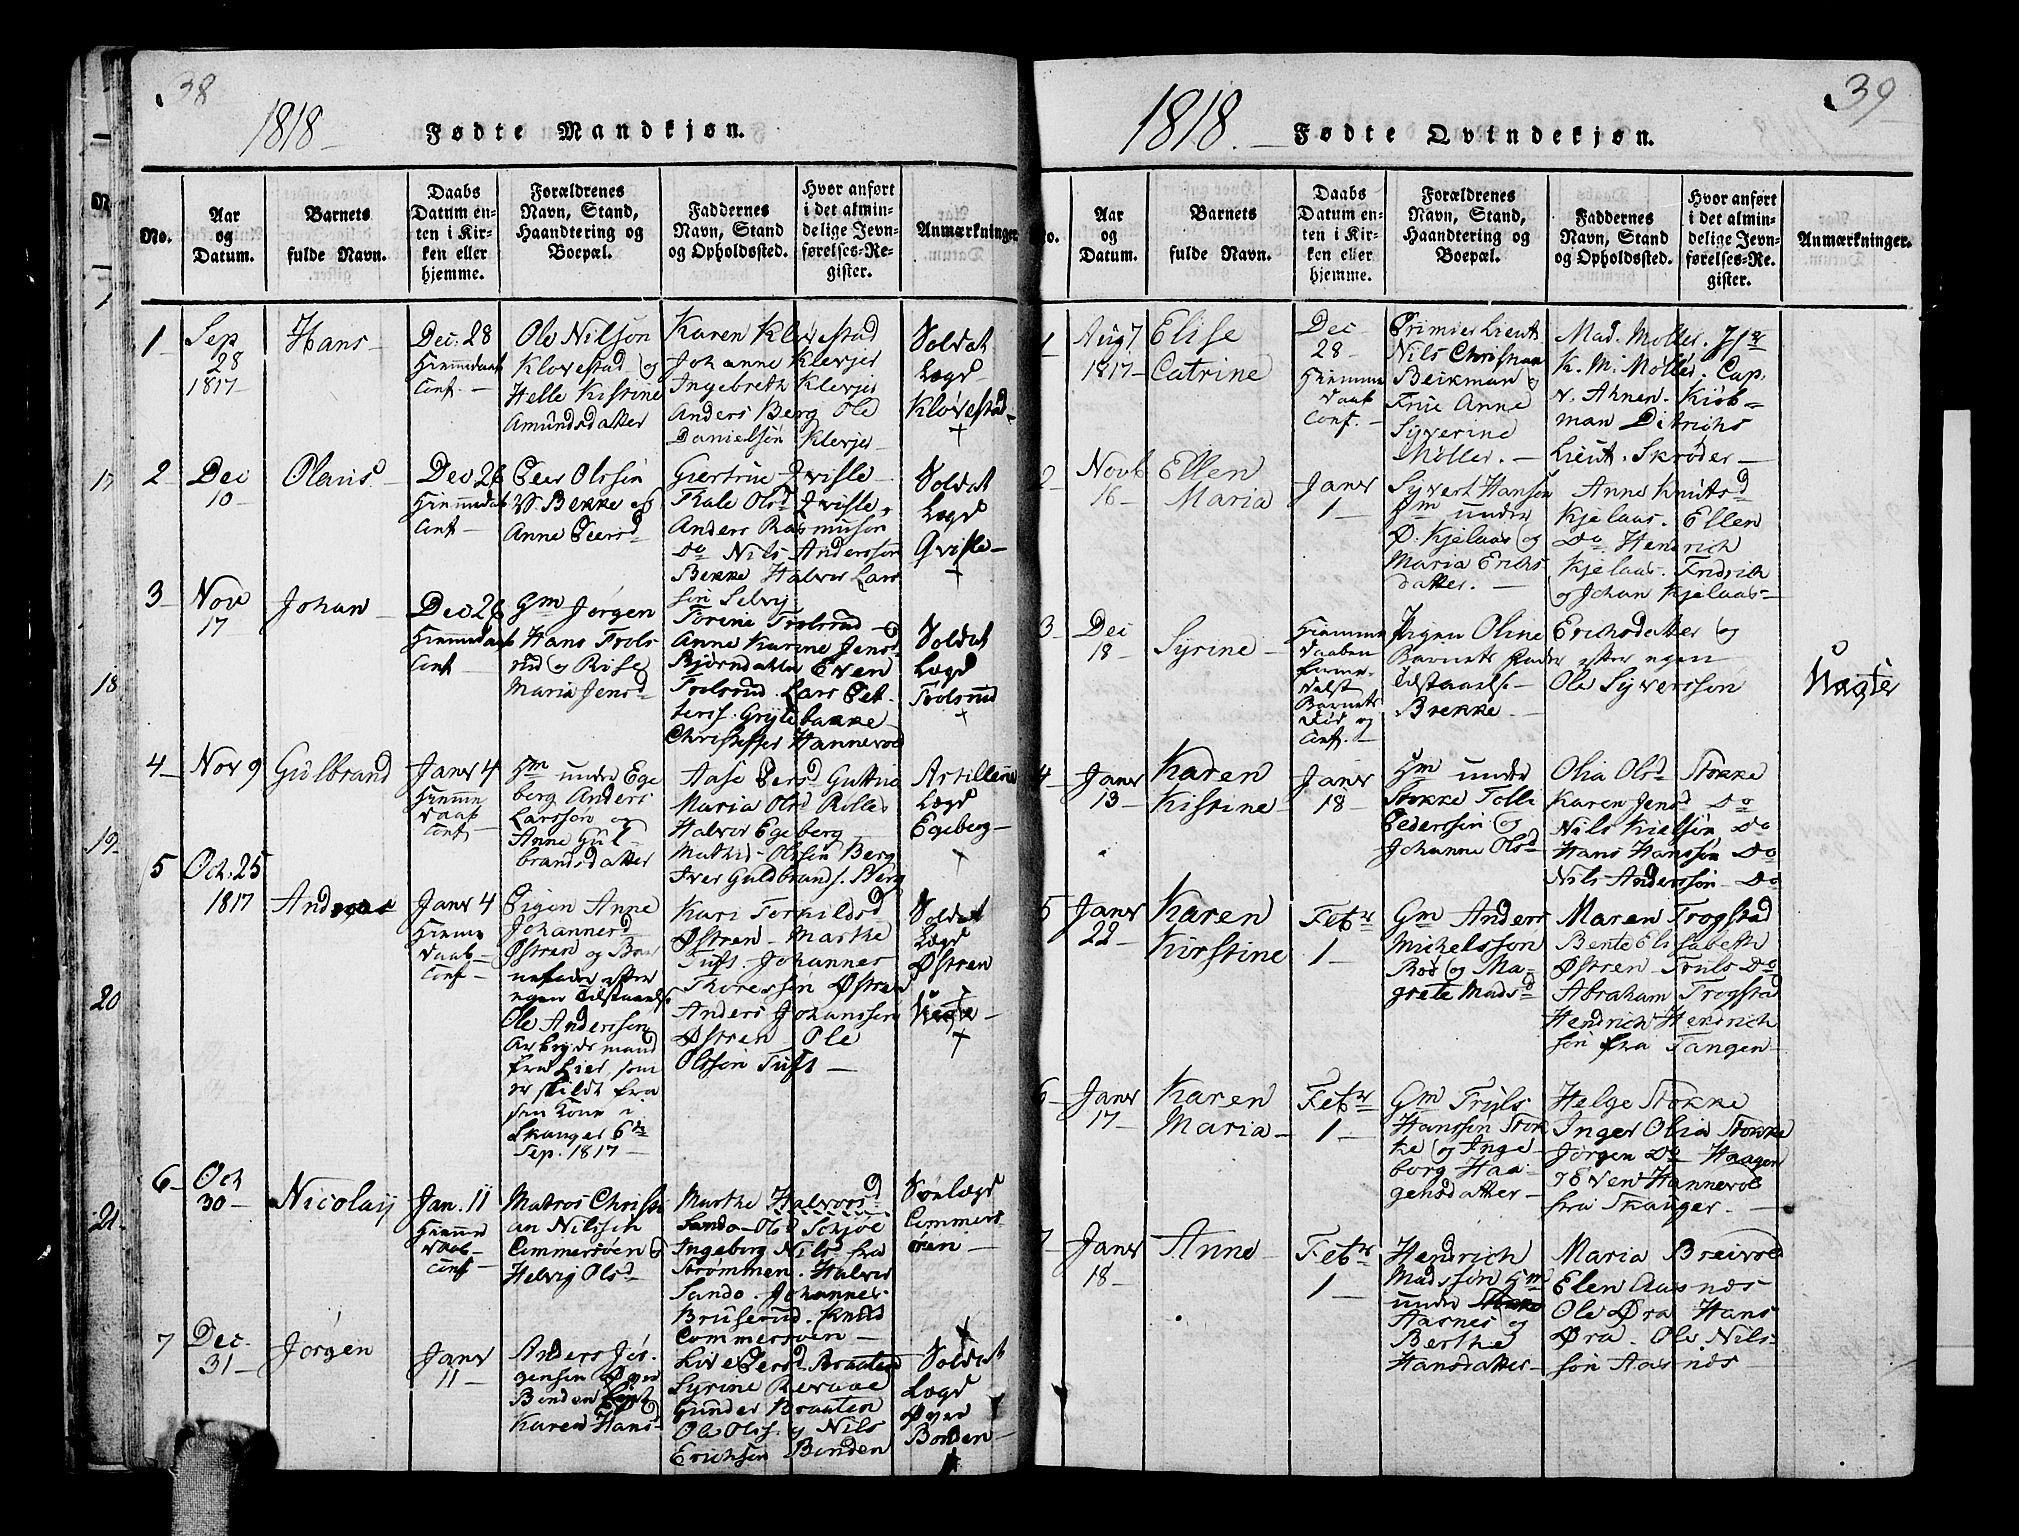 38
1818
Fødte Mandkjøn.
No.
Aar
og
Datum.
Barnets
fulde Navn.
Daabs
Datum en-
ten i Kir-
ken eller
hjemme.
Forældrenes
Navn, Stand,
Haandtering og
Boepæl.
Faddernes
Navn, Stand
og Opholdssted.
Hvor anført
i det almin-
delige Jevn-
førelses-Re-
gister.
Anmærkninger
1
Sep
28
1817
Hans
Dec. 28
Hiemmedaab
Conf.
Ole Nilsøn
Klovestad og
Helle Kistine
Amundsdatter
Karen Klovestad
Johanne Klevjer
Ingebreth Klevjer
Anders Berg Ole
Danielsøn Klevjer
Soldat
Lægd
Klovestad
2
Dec
10
Olaus
Dec 28
Hiemmedaab
Conf
Peer Olssøn
V. Bekke og
Anne Peersd
Giertrue Qvisle
Thale Olsd Qvisle,
Anders Rasmusøn
Do Nils Anderssøn
Bekke Halvor Lars
søn Selvig
Soldat
Lægd
Qvisle
3
Nov
17
Johan
Dec 28
Hiemmedaab
Conf
Gm Jørgen
Hans Trols
rud og Rise
Maria Jensd
Torine Trolsrud
Anne Karine Jensd
Bjørndalen Even
Trolsrud Lars Pet
terss. Grytebakke
Christoffer Hannevold
Soldat
Lægd
Trolsrud
4
Nov 9
Gulbrand
Janv 4
Hiemme
daab
Conf
Hm under Ege
berg Anders
Larssøn og
Anne Gul
brandsdatter
Aase Persd
Maria Olsd
Halvor Egeberg
Mathis Olssøn Berg
Iver Guldbrands. Berg
Artillerie
Lægd
Egeberg
5
Oct. 25
1817
Andreas
Janv 4
Hiemme
daab
Conf
Pigen Anne
Johannesd
Østren og Bar
nefader efter
egen tilstaaelse
Ole Anderssøn
Arbeydsmand
fra Lier, som
er skildt fra
sin Kone i
Skauger 6te
Sep. 1817
Kari Terkildsd
Østren Marthe
Tuft Johannes
Thoressøn Østren
Anders Johanssøn
Østren Ole
Olssøn Tuft
Soldat
Lægd
Østren
Uægte
6
Oct
30
Nicolay
Jan. 11
Hiemme
daab
Conf
Matros Christi
an Nilssen
Commersøen og
Helvig Olsd
Marthe Halvorsd
Sando Olsd
Ingeborg Nilsd fra
Strømmen. Halvor
Sando. Johannes
Bruserud. Knud
Commersøen
Søelægd
Commers
øen
7
Dec.
31
Jørgen
Janv
11
Anders Jør
gensen Øvre
Bonden og
Karen Hans
Live Persd Braaten
Syrine Revaae
Gunder Braaten
Ole Olss. og Nils
Erichsøn Bonden
Soldat
Lægd
Øvre
Bonden
39
1818.
Fødte Qvindekjøn.
No.
Aar
og
Datum.
Barnets
fulde Navn.
Daabs
Datum en-
ten i Kir-
ken eller
hjemme.
Forældrenes
Navn, Stand,
Haandtering og
Boepæl.
Faddernes
Navn, Stand
og Opholdssted.
Hvor anført
i det almin-
delige Jevn-
førelses-Re-
gister.
Anmærkninger.
1
Aug 7
1817
Elise
Catrine
Dec
28
Hiemme
daab
Conf.
Primier Lieut.
Nils Christian
Beikman og
Frue Anne
Syverine
Møller.
Mad. Møller. Jfr
K. M. Møller. Cap.
v. Ahnen. Kiøb-
man Ditrichs
Lieut. Skrøder
2
Novb
16
Ellen
Maria
Janv
1
Syvert Hansøn
Hm under
Ø. Kjelaas og
Maria Erichs
datter.
Anne Knutsd
Kjelaas. Ellen
Do. Hendrich
Kjelaas. Fridrich
og Johan Kjelaas
3
Dec
18
Syrine
Hiemme
daaben
forre-
Barnets
død og
Conf.
Pigen Oline Erichsdatter og
Barnets Fader efter egen
tilstaaelse Ole Syverssøn
Brekke
Uægte
4
Janv
13
Karen
Kistine
Janv
18
Hm under
Stokke Tolle
Pederssøn og
Johanne Olsd
Olia Olsd Stokke
Karen Jensd Do
Nils Kielsøn Do
Hans Hanssøn Do
Nils Anderssøn Do
5
Janv
22
Karen
Kirstine
Febr
1
Gm Anders
Michelssøn
Rød og Ma
grete Madsd
Maren Trogstad
Bente Elisabeth
Østren Truls Do
Abraham Trogstad
Hendrich Hendrich
søn fra Tangen
6
Janv
17
Karen
Maria
Febr
1
Gm Truls
Hanssøn Stok
ke og Inge
borg Haa
gensdatter
Helge Stokke
Inger Olia Stokke
Jørgen Do Haagen
og Even Hannevold
fra Skauger.
7
Janv
18
Anne
Febr
1
Hendrich
Madssøn Hm
under
Aasnes og
Berthe
Hansdatter
Maria Breivold
Elen Aasnes
Ole Øra Hans
Øra. Ole Nils-
søn Aasnes
17
18
19
20
21